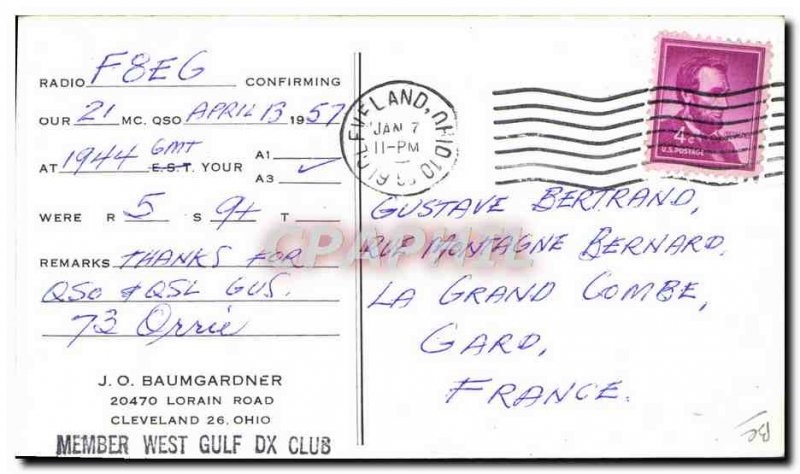 RADIO F8EG CONFIRMING
OUR 21 MC. QSO APRIL 13 1957
AT 1944 GMT E.S.T. YOUR A1
A3 ✓
WERE R 5 S 9+ T
REMARKS THANKS FOR
QSO & QSL GUS.
73 Orrie
J. O. BAUMGARDNER
20470 LORAIN ROAD
CLEVELAND 26, OHIO
MEMBER WEST GULF DX CLUB
CLEVELAND, OHIO 10
JAN 7
11-PM
4¢
U.S. POSTAGE
GUSTAVE BERTRAND,
RUE MONTAGNE BERNARD,
LA GRAND COMBE,
GARD,
FRANCE.
CPAPHIL